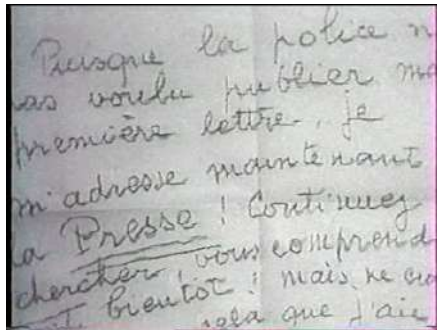 Puisque la police n
pas voulu publier ma
première lettre, je
m'adresse maintenant
la Presse ! Continuez
chercher, vous comprend
bientôt ! mais, ne cro
cela que j'aie